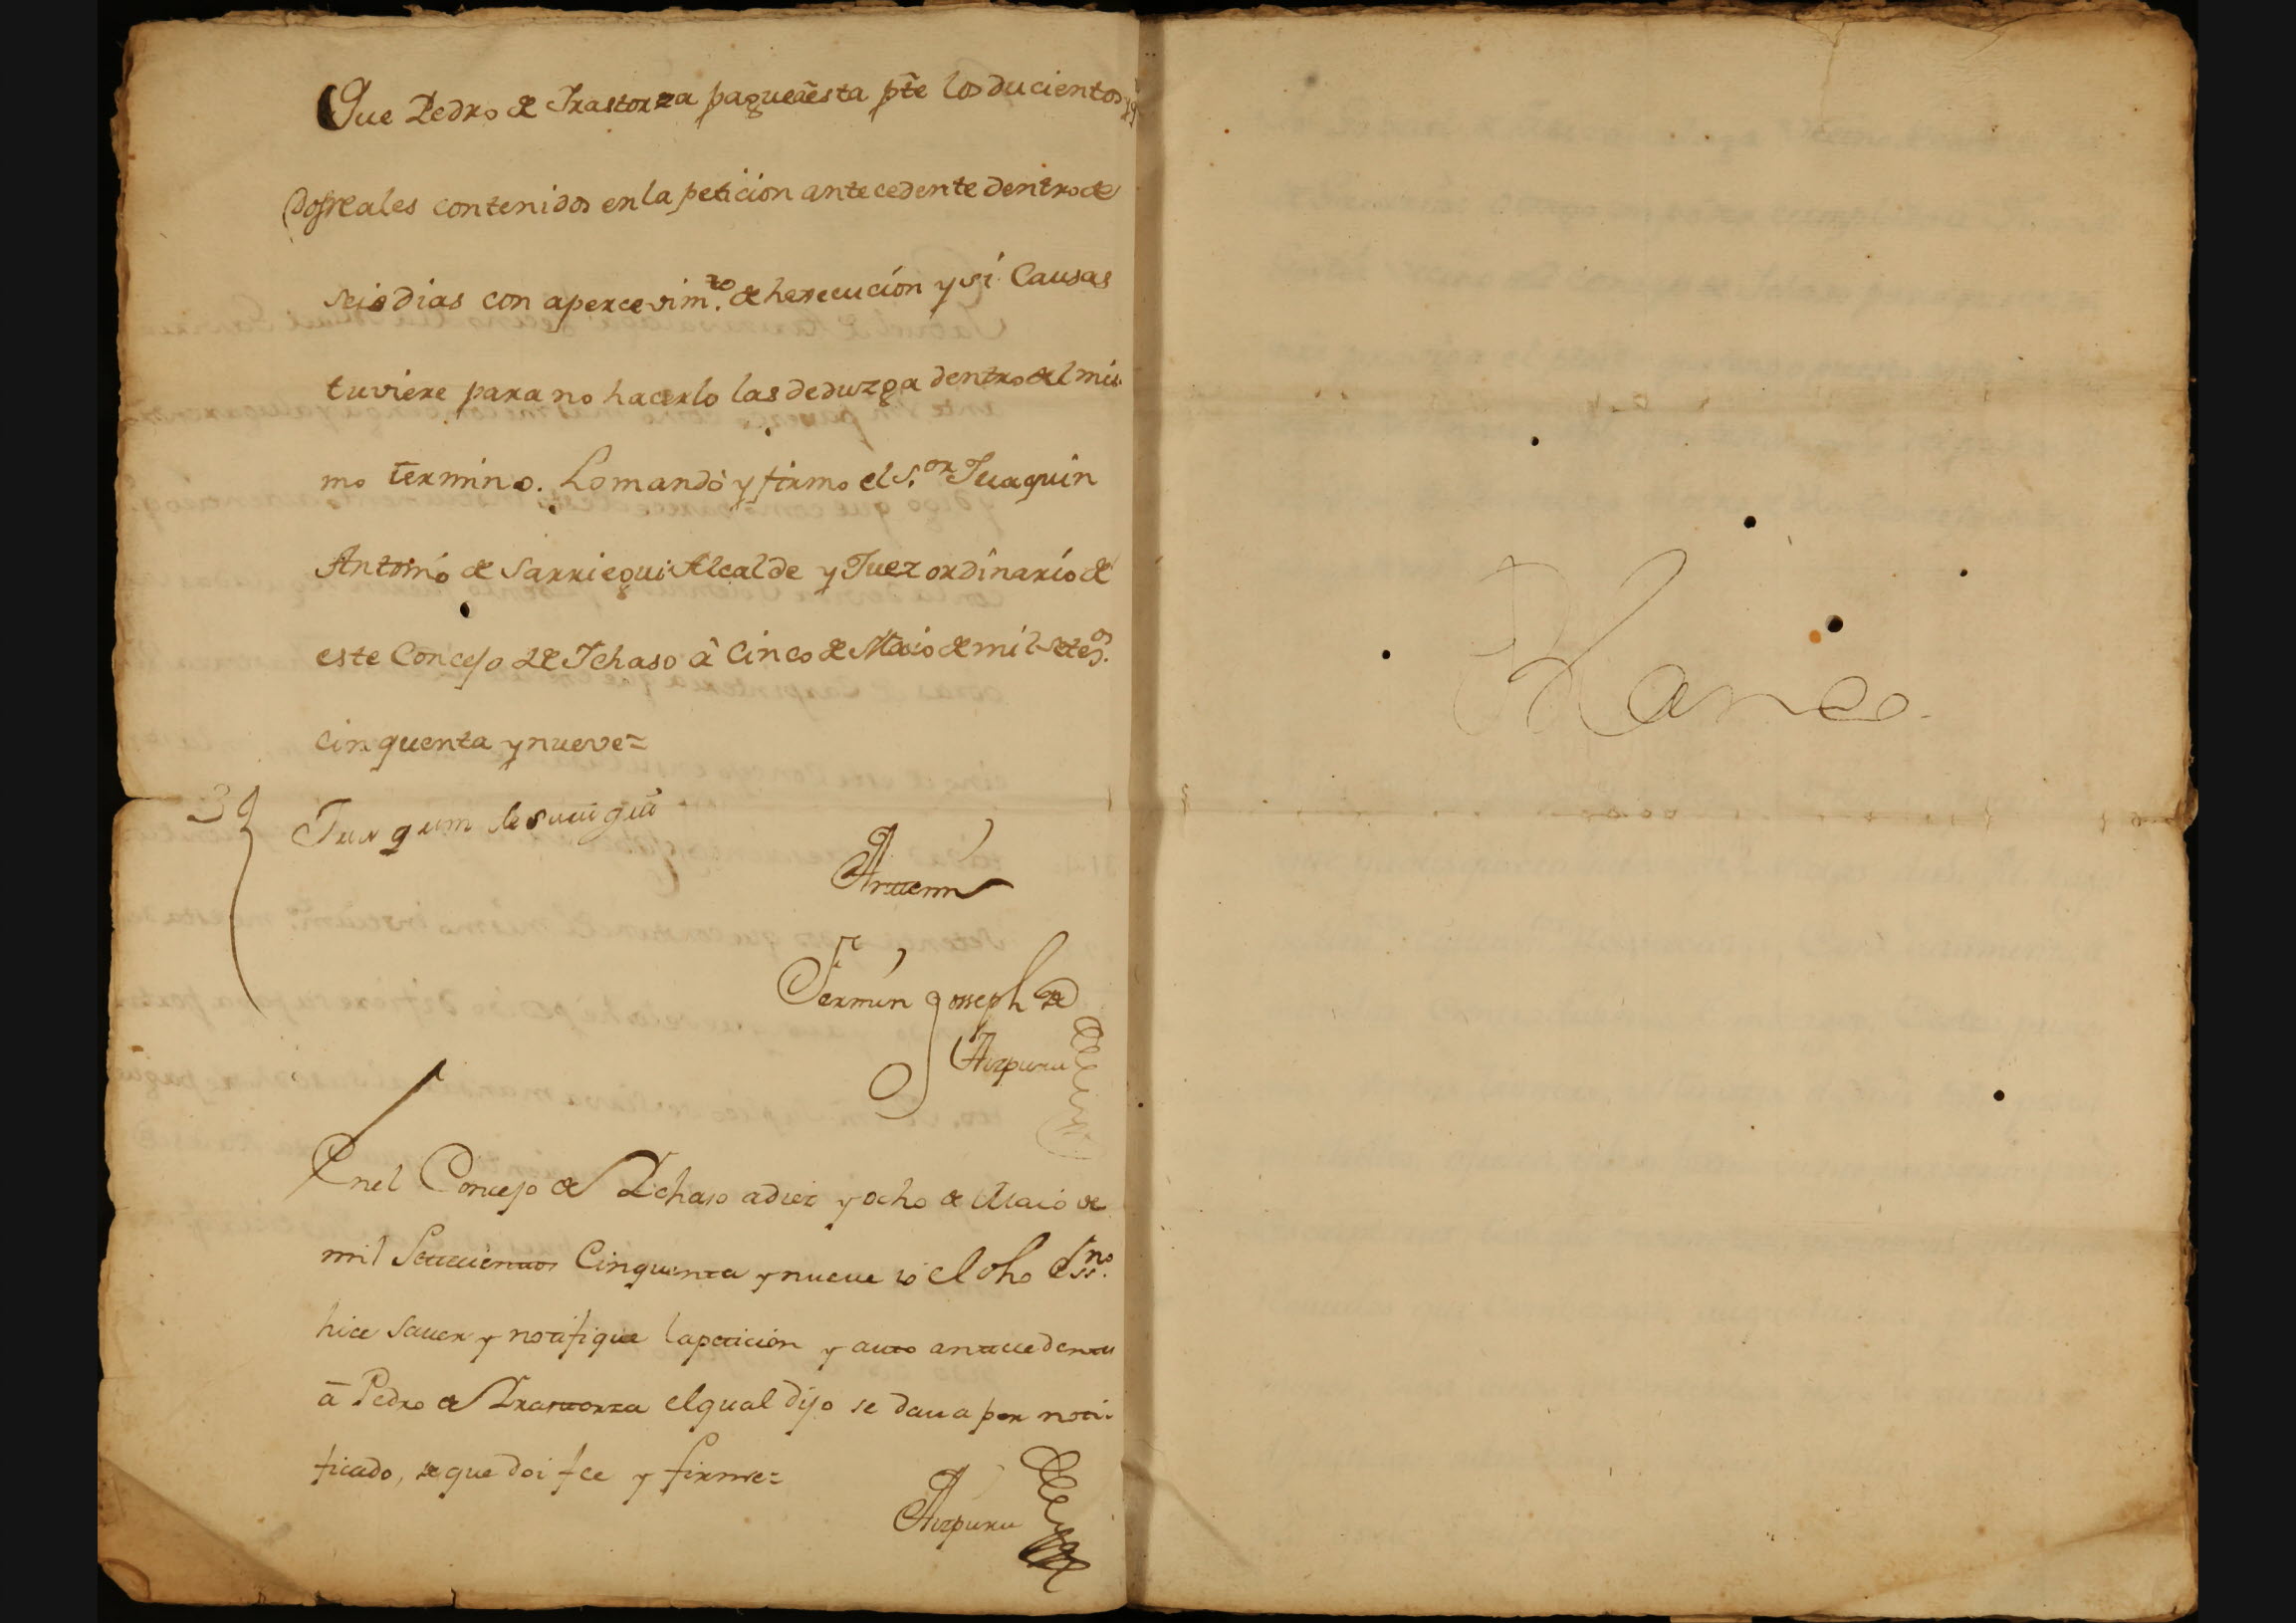 Que Pedro de Trastorza pague â esta pte los ducientos y
dos reales contenidos en la peticion antecedente dentro de
seis dias con apercevim.to de hexecución y si Causas
tuviere para no hacerlo las deduzga dentro del mis
mo termino. Lo mandò y firmo el S.or Juaquin
Antonio de Sarriegui Alcalde y Juez ordinario de
este Concejo de Ichaso â Cinco de Maio de mil Setez.os
cinquenta y nueve=
Juaquin de Sarriegui
Ante mi
Fermin Joseph de
Aizpuru
En el Concejo de Ichaso a diez y ocho de Maio de
mil Setecientos Cinquenta y nueve io el dho Ess.no
hice saver y notifique la peticion y auto antecedentes
â Pedro de Irastorza el qual dijo se dava por noti-
ficado, de que doi fee y firme=
Aizpuru
Blanco.